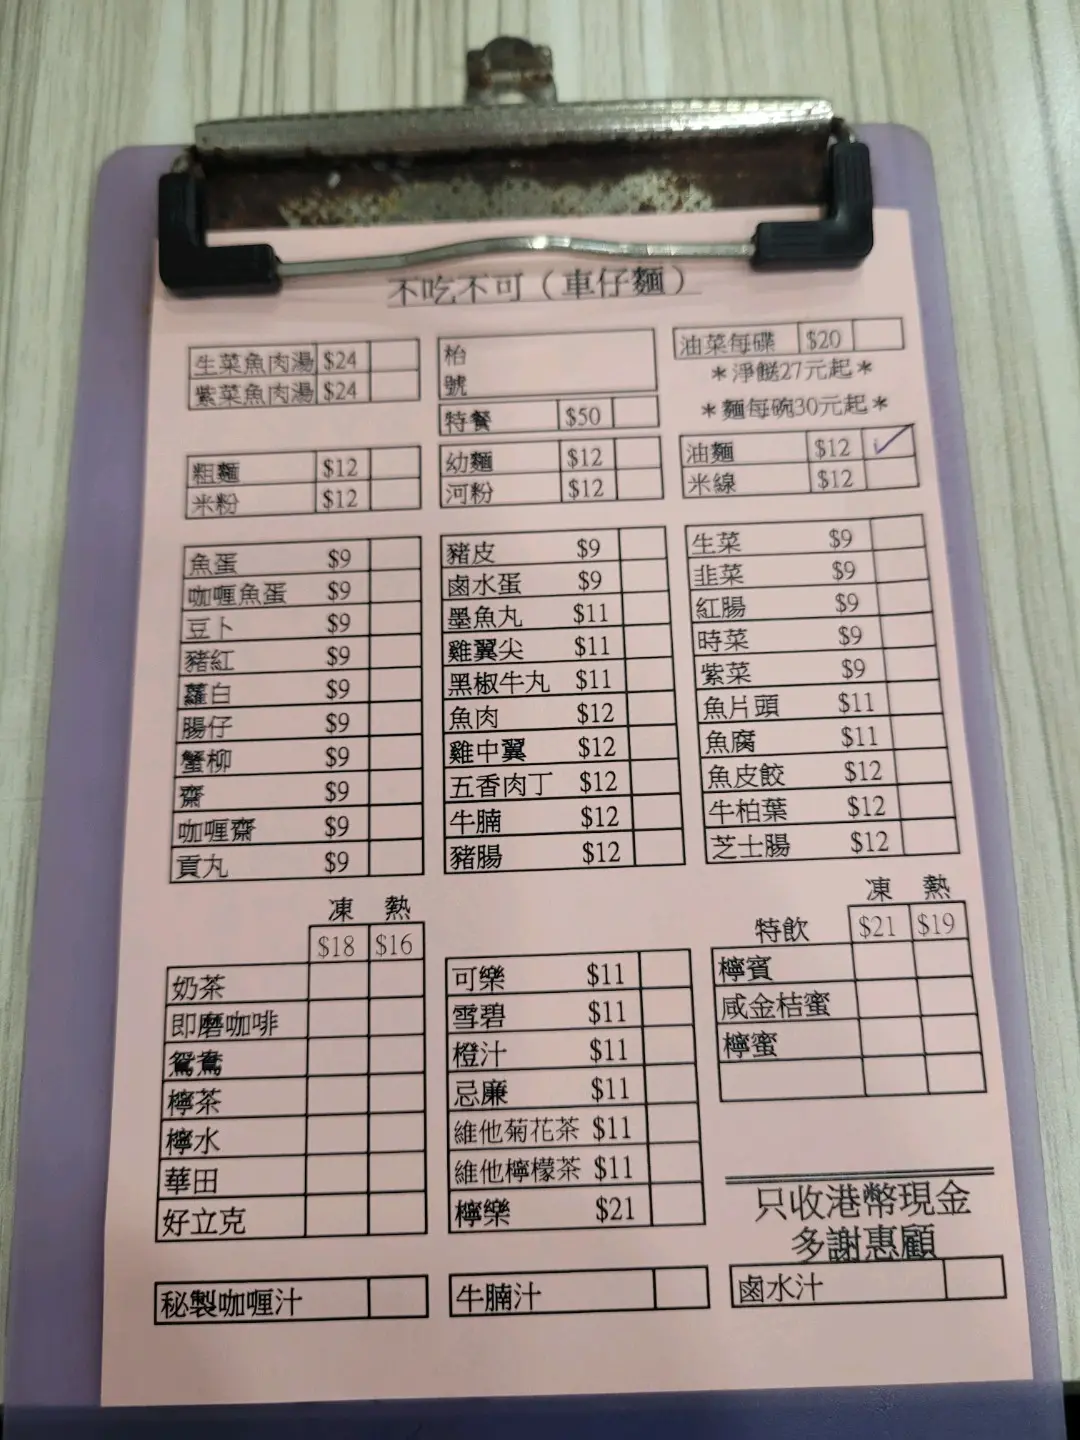 不吃不可（車仔麵）
生菜魚肉湯 $24
紫菜魚肉湯 $24
枱號
特餐 $50
油菜每碟 $20
＊淨餸27元起＊
＊麵每碗30元起＊
粗麵 $12
米粉 $12
幼麵 $12
河粉 $12
油麵 $12 ✓
米線 $12
魚蛋 $9
咖喱魚蛋 $9
豆卜 $9
豬紅 $9
蘿白 $9
腸仔 $9
蟹柳 $9
齋 $9
咖喱齋 $9
貢丸 $9
豬皮 $9
鹵水蛋 $9
墨魚丸 $11
雞翼尖 $11
黑椒牛丸 $11
魚肉 $12
雞中翼 $12
五香肉丁 $12
牛腩 $12
豬腸 $12
生菜 $9
韭菜 $9
紅腸 $9
時菜 $9
紫菜 $9
魚片頭 $11
魚腐 $11
魚皮餃 $12
牛柏葉 $12
芝士腸 $12
凍 熱
$18 $16
奶茶
即磨咖啡
鴛鴦
檸茶
檸水
華田
好立克
可樂 $11
雪碧 $11
橙汁 $11
忌廉 $11
維他菊花茶 $11
維他檸檬茶 $11
檸樂 $21
凍 熱
特飲 $21 $19
檸賓
咸金桔蜜
檸蜜
只收港幣現金
多謝惠顧
秘製咖喱汁
牛腩汁
鹵水汁